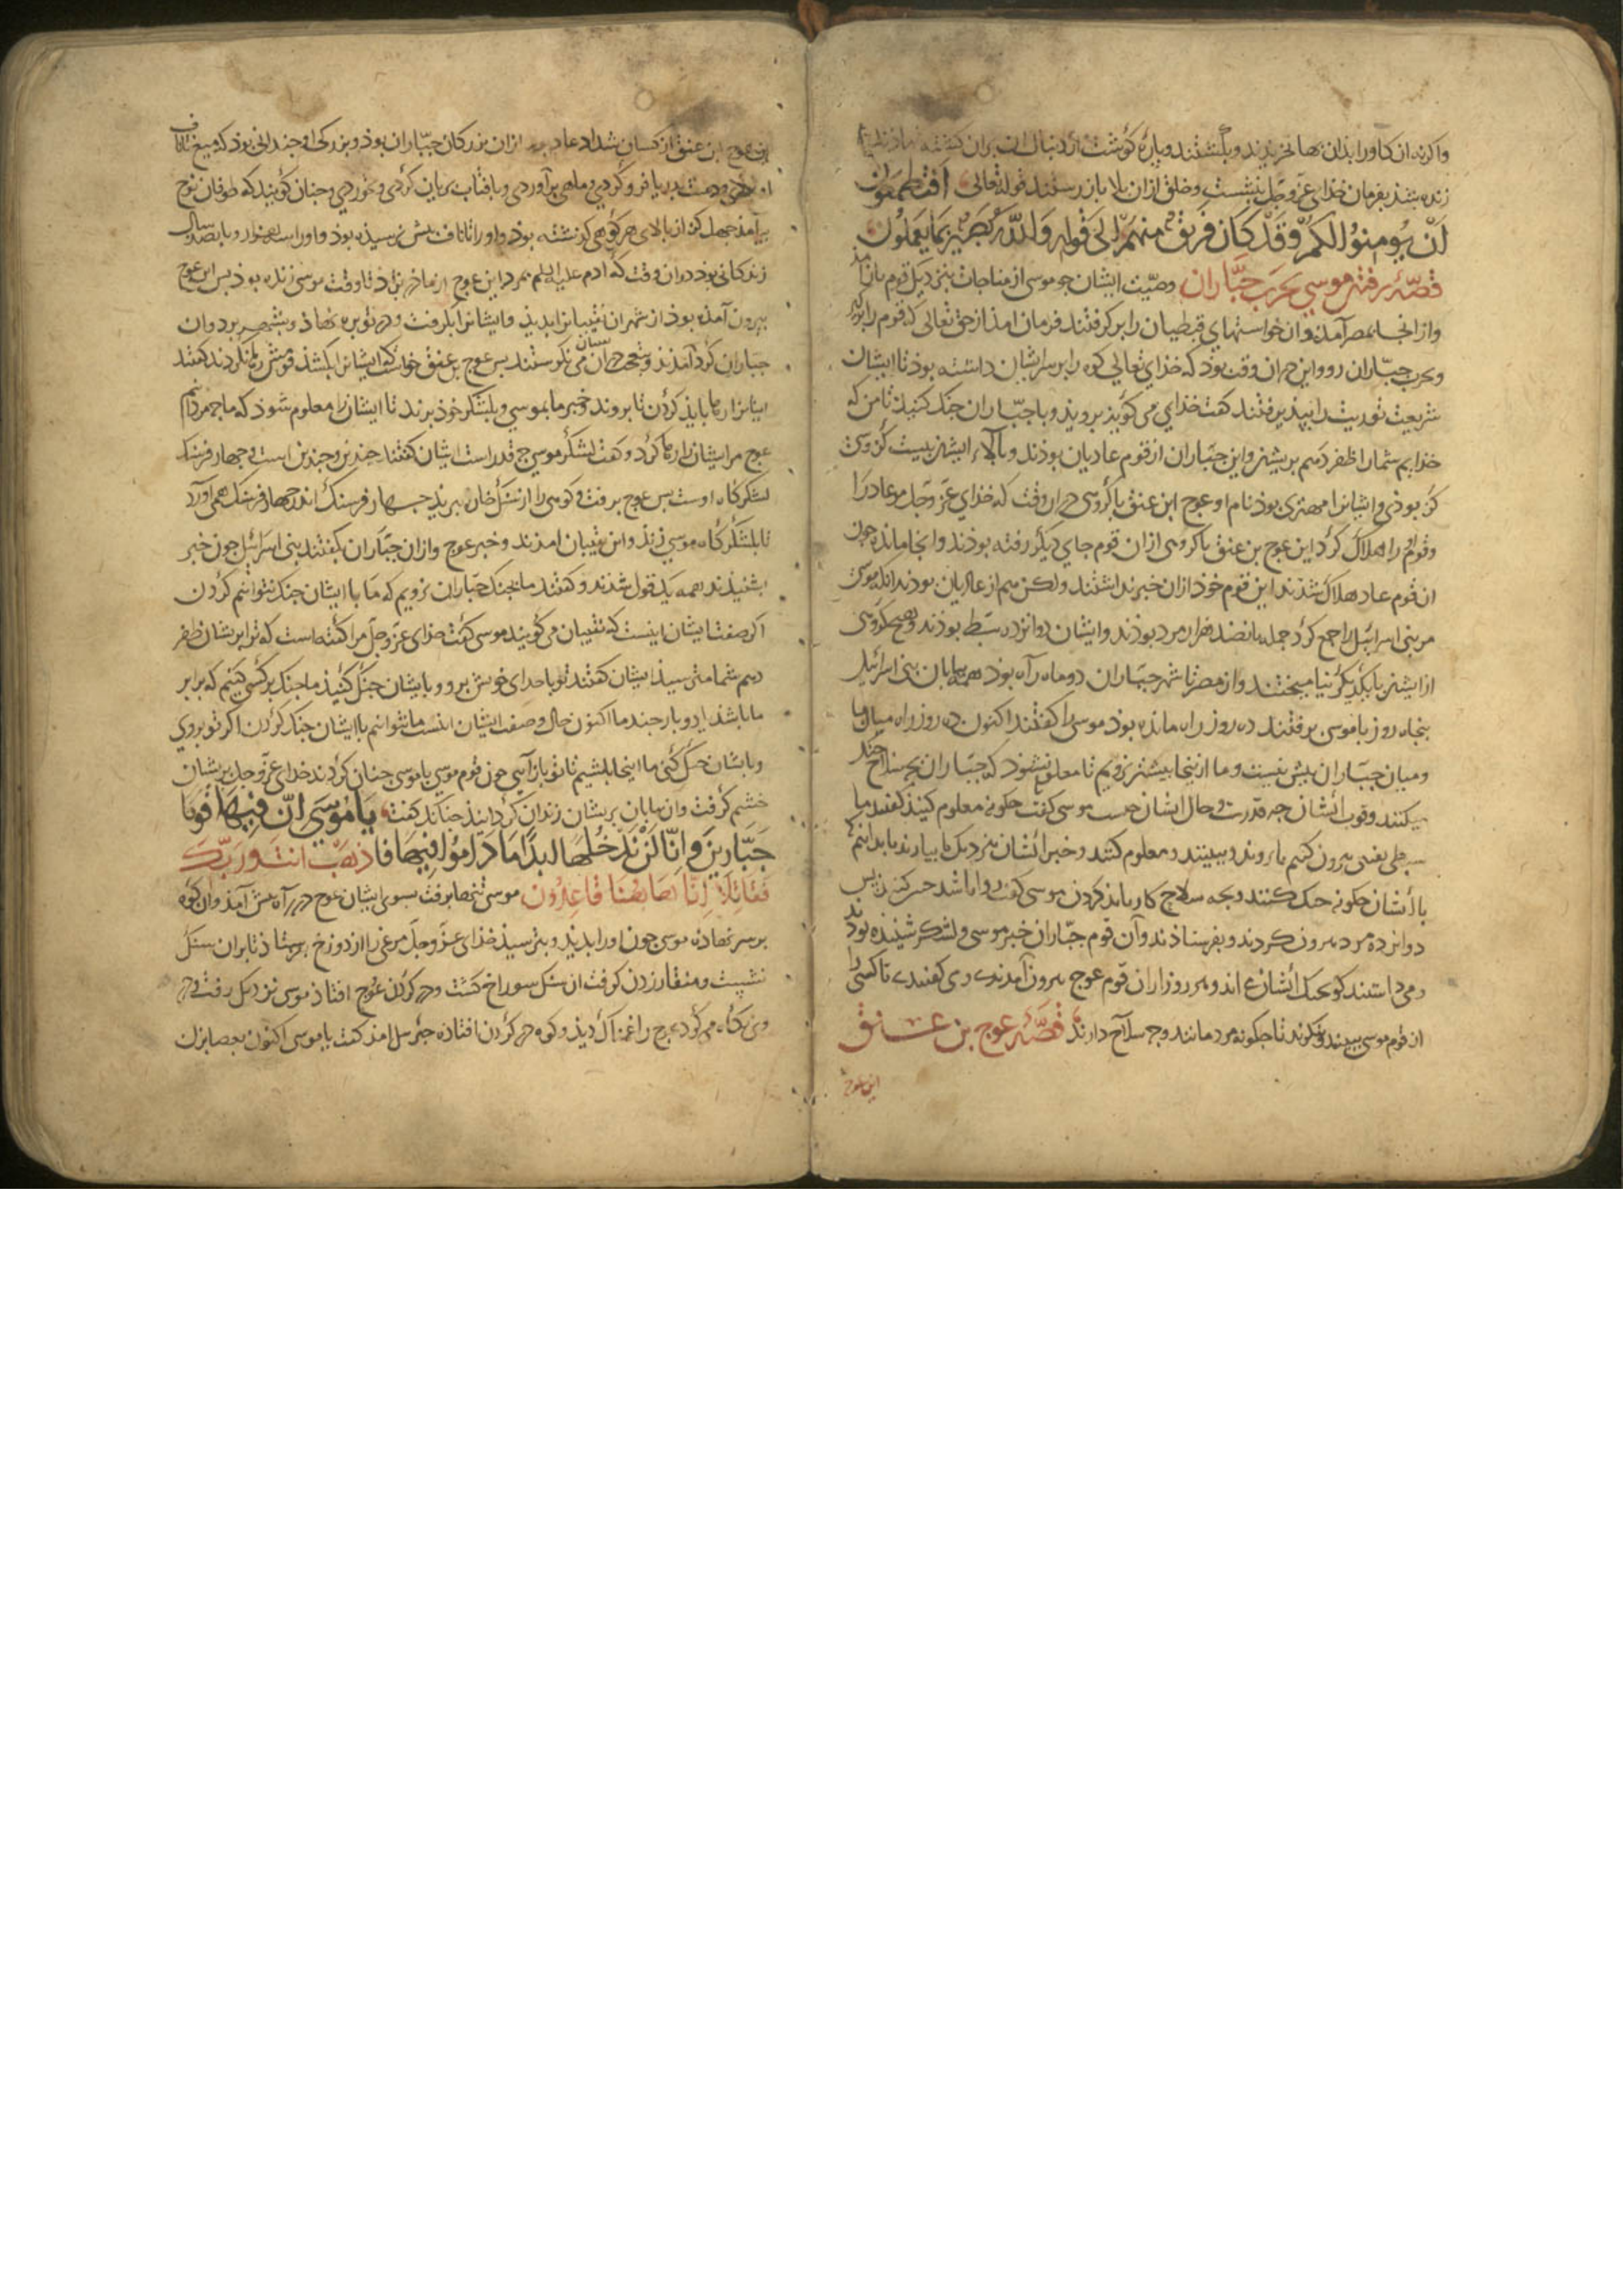 زنده شذ بفرمان خدای عزّ و جلّ بنشست و خلق ازان بلا باز رستند قوله تعالی افتطمعون
ان يؤمنوا لكم وقد كان فريق منهم الی قوله والله بصير بما يعملون
قصّهٔ رفتن موسی بحرب جبّاران وصیّت ایشان چو موسی از مناجات بنزدیک قوم باز آمذ
واز انجا بمصر آمدند وان خواستهای قبطیان را بر گرفتند فرمان امذ از حق تعالی که قوم را برگیر
وبحرب جبّاران رو واین در ان وقت بوذ که خذای تعالی کوه را بر سر ایشان داشته بوذ تا ایشان
شریعت توریت را بپذیرفتند گفت خذای می گویذ بروید و با جبّاران جنک کنید تا من که
خدایم شما را ظفر دهم بریشان واین جبّاران از قوم عادیان بوذند وبالاء ایشان بیست گز وسی
گز بوذی و ایشانرا مهتری بوذ نام او عوج ابن عنق با گروهی در ان وقت که خذای عزّ وجلّ مر عاد را
وقوم را هلاک کرد این عوج بن عنق با گروهی از ان قوم جای دیگر رفته بوذند وانجا مانده چون
ان قوم عاد هلاک شذند این قوم خود ازان خبر نداشتند ولکن هم از عادیان بوذند انکه موسی
مر بنی اسرائیل را جمع کرد جمله پانصد هزار مرد بوذند وایشان دوانزده سبط بوذند وهیچ گروهی
از ایشان با یکدیگر نیامیختند واز مصر تا شهر جبّاران دو ماه راه بوذ همه بیابان بنی اسرائیل
پنجاه روز با موسی برفتند ده روز راه مانده بوذ موسی را گفتند اکنون ده روز راه میان ما
ومیان جبّاران بیش نیست وما ازینجا بیشتر نرویم تا معلوم نشود که جبّاران بچه سلاح جنک
میکنند وقوت ایشان چه قدرست و حال ایشان چیست موسی گفت چگونه معلوم کنیذ گفتند ما
با ایشان چگونه جنک کنند وبچه سلاح کار باید کردن موسی گفت روا باشد چنین کنید پس
دوانزده مرد بیرون کردند و بفرستاذند وآن قوم جبّاران خبر موسی ولشکر شنیذه بوذند
از قوم موسی ببینند و بگویند تا چگونه مردمانند وچه سلاح دارند قصّهٔ عوج بن عــــانق
این عوج
این عوج ابن عنق از کسان شداد عاد بود ازان بزرگان جبّاران بوذ وبزرکی او چندانی بوذ که میغ تا ناف
او بوذی ودست بدریا فرو کردی و ماهی برآوردی وبافتاب بریان کردی وبخوردی و چنان گویند که طوفان نوح
بیآمذ چهل گز از بالای هر کوهی گذشته بوذ واو را تا ناف بیش نرسیذه بوذ واو را سه هزار و پانصد سال
زندکانی بوذ در ان وقت که آدم علیه السلم بمرد این عوج از ماذر بزاد تا وقت موسی زنده بوذ پس این عوج
بیرون آمذه بوذ از شهر ان نقیبان را بدیذ و ایشانرا بگرفت ودر توبره نهاذ و بشهر برد وان
جبّاران گرد آمدند و بتعجب در ایشان می نگرستند پس عوج بن عنق خواست که ایشانرا بکشذ قومش رها نکردند گفتند
اینانرا رها بایذ کردن تا بروند وخبر ما بموسی و بلشکر خوذ برند تا ایشان را معلوم شوذ که ما چه مردانیم
عوج مر ایشان را رها کرد و گفت لشکر موسی چه قدر است ایشان گفتند چندین و چندین است و چهار فرسنک
لشکرگاه اوست پس عوج برفت و کوهی را از سنک خاره ببرید چهار فرسنک اندر چهار فرسنک همی آورد
تا بلشکرگاه موسی زند و این نقیبان امذند وخبر عوج وازان جبّاران بگفتند بنی اسرائیل چون خبر
بشنیذند همه یک قول شذند و گفتند ما بجنک جبّاران نرویم که ما با ایشان جنک نتوانیم کردن
اکر صفت ایشان اینست که نقیبان می گویند موسی گفت خذای عزّ وجلّ مرا گفته است که ترا بریشان ظفر
دهم شما مترسیذ ایشان گفتند تو با خدای خویش برو و با ایشان جنک کنیذ ما جنک بر کسی کنیم که برابر
وبا ایشان جنک کنی ما اینجا بنشینیم تا تو باز آیی چون قوم موسی با موسی چنان کردند خدای عزّ وجلّ بریشان
خشم گرفت وان بیابان بریشان زندان گردانیذ چنانکه گفت يا موسی انّ فيها قوما
جبّارين وانّا لن ندخلها ابدًا ما داموا فيها فاذهب انت وربّك
فقاتلا انّا هاهنا قاعدون موسی تنها برفت بسوی ایشان عوج در راه پیش آمذ وان کوه
بر سر نهاذه موسی چون او را بدیذ و بترسیذ خذای عزّ وجلّ مرغی را از دوزخ بفرستاذ تا بر ان سنک
نشست ومنقار زدن گرفت ان سنک سوراخ گشت ودر گردن عوج افتاذ موسی نزدیک رفت و در
وی نگاه می کرد عوج را غمناک دیذ وکوه در گردن افتاده جبرئیل امذ گفت یا موسی اکنون بعصا بزن